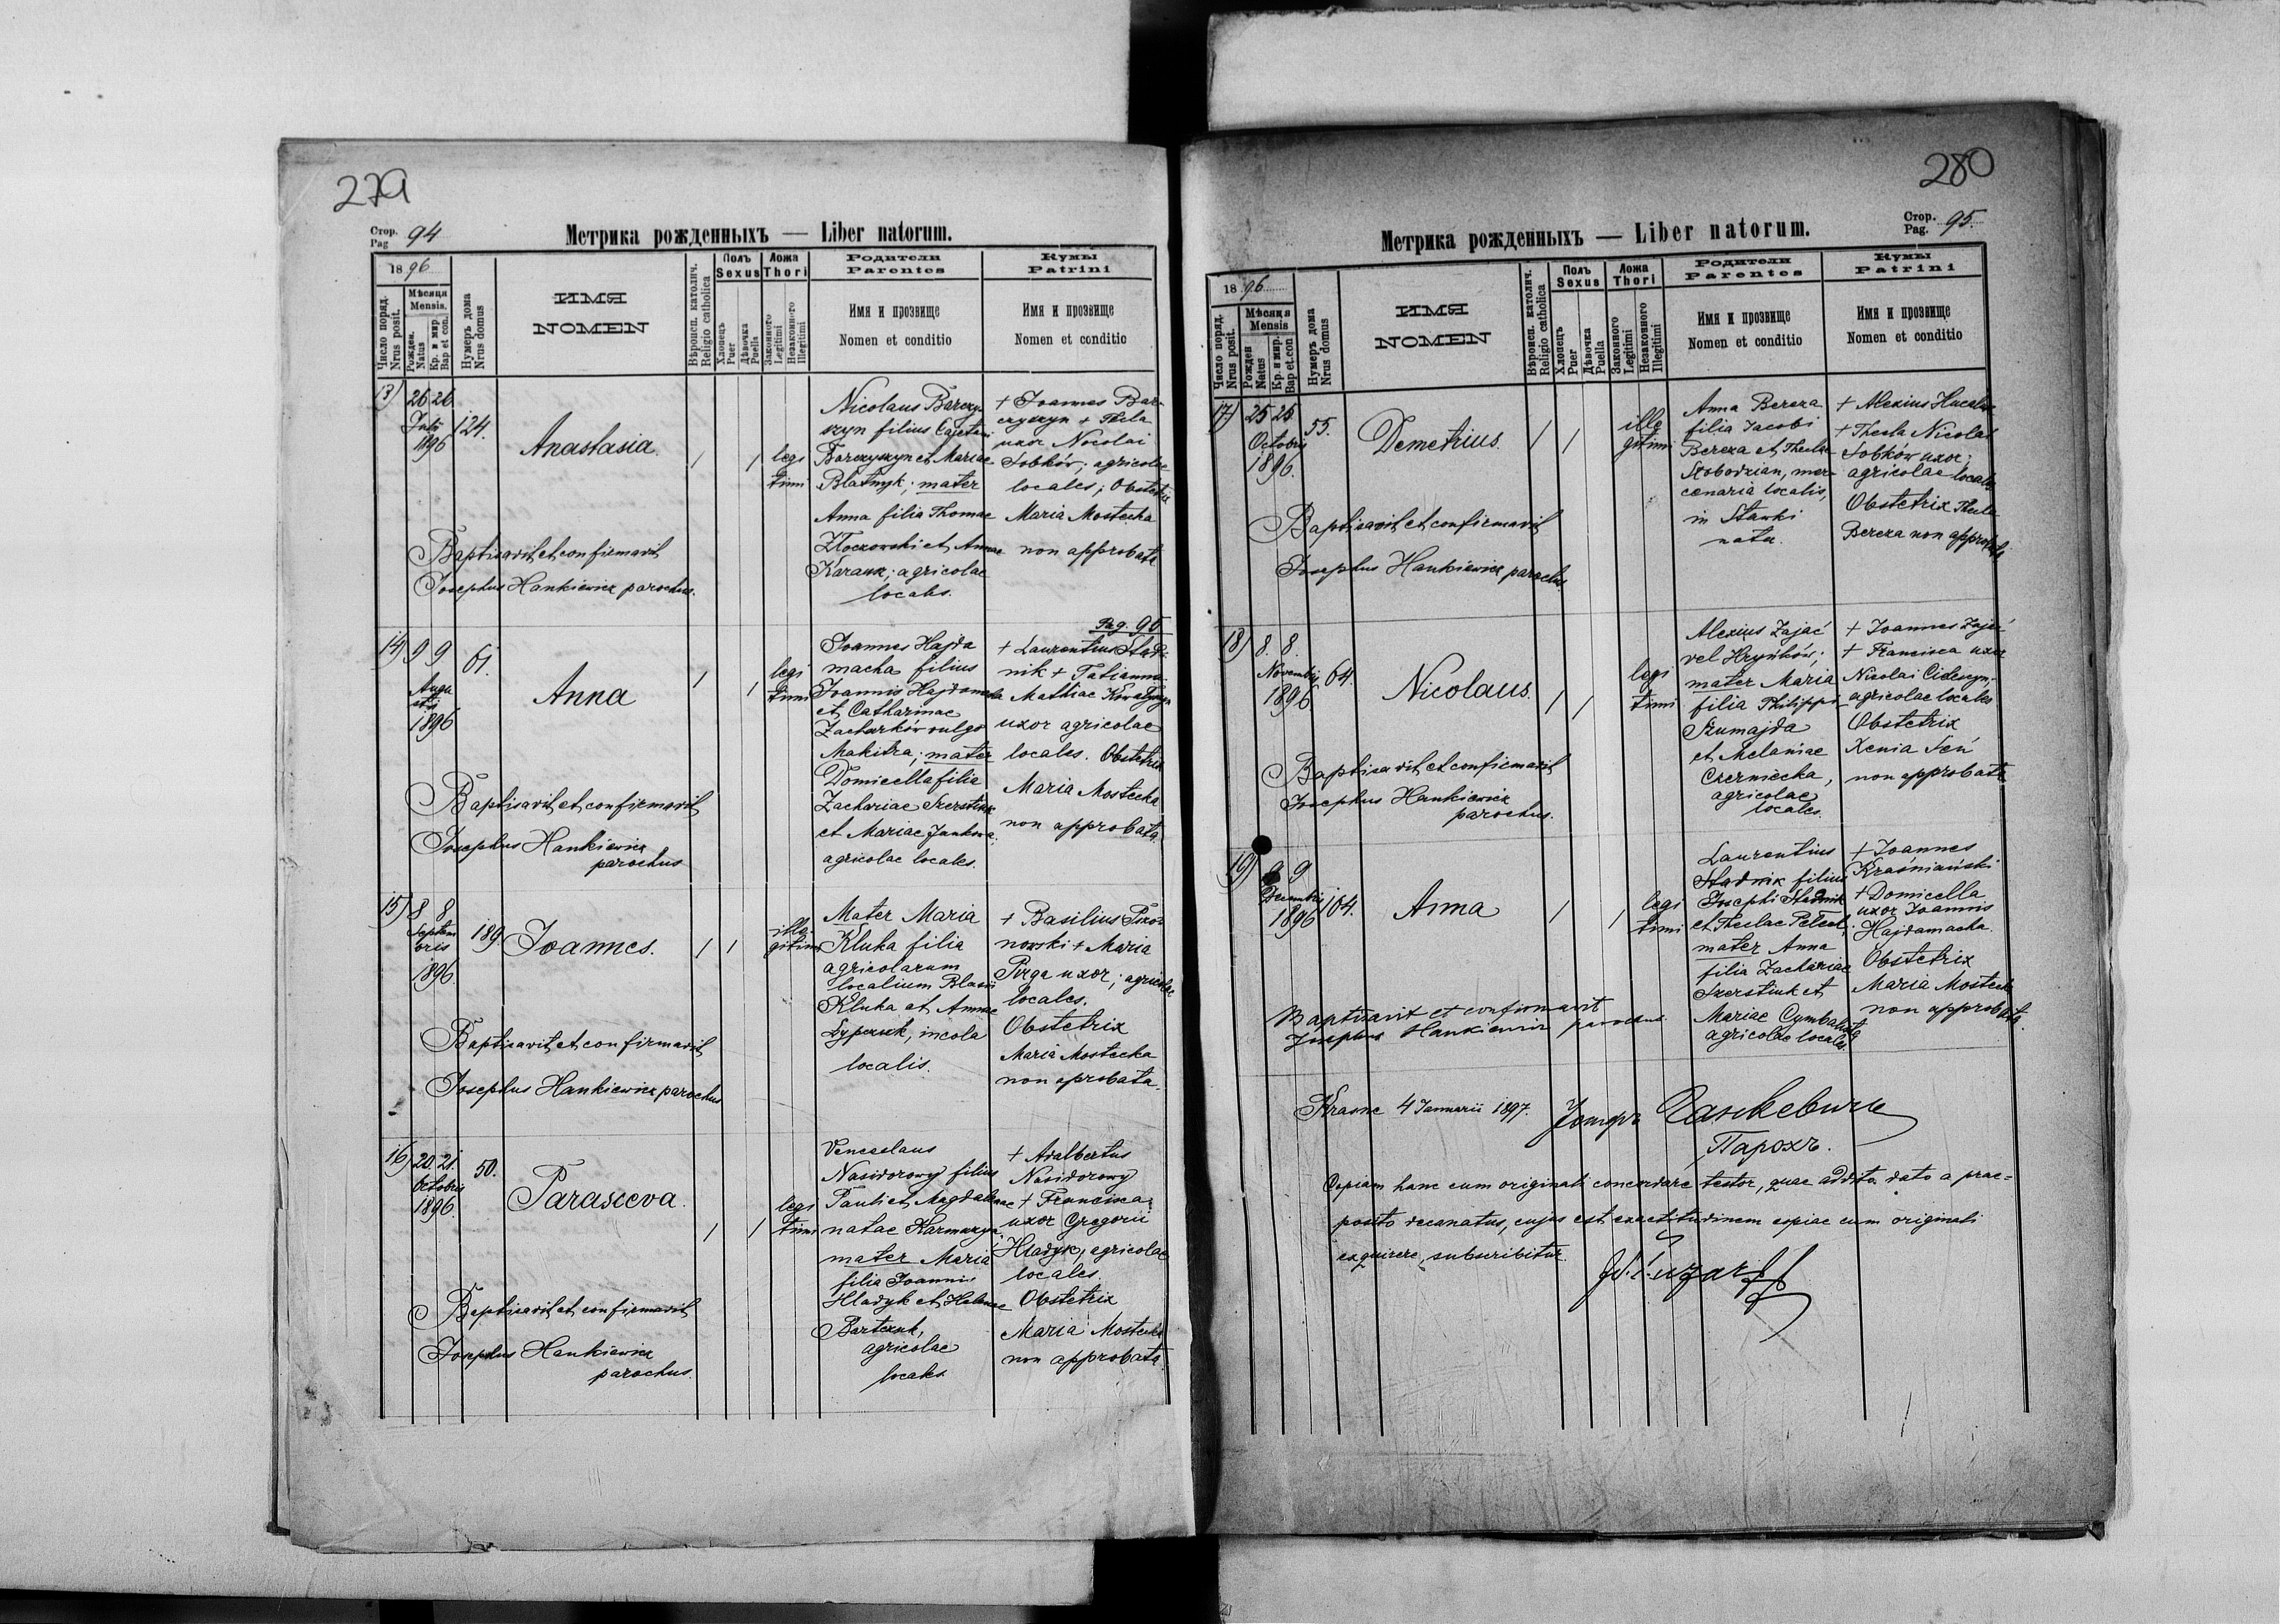 279
Стор.
Pag 94
Метрика рожденныхъ — Liber natorum.
1896
Число поряд.
Nrus posit.
Мѣсяця
Mensis.
Рожден.
Natus
Кр. и мир.
Bap et con.
Нумеръ дома
Nrus domus
ИМЯ
NOMEN
Вѣроисп. католич.
Religio catholica
Полъ
Sexus
Хлопецъ
Puer
Дѣвочка
Puella
Ложа
Thori
Законного
Legitimi
Незаконного
Illegitimi
Родители
Parentes
Имя и прозвище
Nomen et conditio
Кумы
Patrini
Имя и прозвище
Nomen et conditio
13)
26 26
Julii
1896
124.
Anastasia.
/
/
legi
timi
Nicolaus Barczy-
szyn filius Cajetani
Barczyszyn et Mariae
Blatnyk; mater
Anna filia Thomae
Złoczowski et Annae
Karauk; agricolae
locales.
+ Joannes Bar-
czyszyn + Thecla
uxor Nicolai
Sobków; agricolae
locales; Obstetrix
Maria Mostecka
non approbata
Baptisavit et confirmavit
Josephus Hankiewicz parochus.
Pag. 95
14)
9 9
Augu
sti
1896
61.
Anna
/
/
legi
timi
Joannes Hajda
macha filius
Joannis Hajdamacha
et Catharinae
Zacharków vulgo
Makitra; mater
Domicella filia
Zachariae Szerstiuk
et Mariae Jankowa;
agricolae locales.
+ Laurentius Stad-
nik + Tatianna
Mathiae
uxor agricolae
locales. Obstetrix
Maria Mostecka
non approbata.
Baptisavit et confirmavit
Josephus Hankiewicz
parochus
15)
8 8
Septem
bris
1896.
189.
Joannes.
/
/
ille
gitimi
Mater Maria
Kluka filia
agricolarum
localium Blasii
Kluka et Annae
incola
localis.
+ Basilius
nowski + Maria
Pirga uxor; agricolae
locales.
Obstetrix
Maria Mostecka
non aprobata.
Baptisavit et confirmavit
Josephus Hankiewicz parochus
16)
20. 21.
Octobris
1896.
50.
Parasceva.
/
/
legi
timi
Venceslaus
Nasidorowy filius
Pauli et Magdalenae
natae
mater Maria
filia Joannis
Hladyk et Helenae
Bartczuk,
agricolae
locales
+ Adalbertus
Nasidorowy
+ Francisca
uxor Gregorii
Hladyk; agricolae
locales.
Obstetrix
Maria Mostecka
non approbata.
Baptisavit et confirmavit
Josephus Hankiewicz
parochus.
280
Стор.
Pag. 95.
Метрика рожденныхъ — Liber natorum.
1896
Число поряд.
Nrus posit.
Мѣсяця
Mensis
Рожден
Natus
Кр. и мир.
Bap et con
Нумеръ дома
Nrus domus
ИМЯ
NOMEN
Вѣроисп. католич.
Religio catholica
Полъ
Sexus
Хлопецъ
Puer
Дѣвочка
Puella
Ложа
Thori
Законного
Legitimi
Незаконного
Illegitimi
Родители
Parentes
Имя и прозвище
Nomen et conditio
Кумы
Patrini
Имя и прозвище
Nomen et conditio
17)
25 25
Octobris
1896.
55.
Demetrius.
/
/
ille
gitimi
Anna Bereza
filia Jacobi
Bereza et Theclae
Słobodzian, mer-
cenaria localis,
in Stawki
nata.
+ Alexius Hucalow
+ Thecla Nicolai
Sobków uxor;
agricolae locales
Obstetrix Thecla
Bereza non approbata
Baptisavit et confirmavit
Josephus Hankiewicz parochus.
18)
8. 8.
Novembris
1896
64.
Nicolaus.
/
/
legi
timi
Alexius Zająć
vel Hryńków;
mater Maria
filia Philippi
Szumajda
et Melaniae
Czerniecka,
agricolae
locales.
+ Joannes Zająć
+ Francisca uxor
Nicolai
agricolae locales
Obstetrix
Xenia Seń
non approbata
Baptisavit et confirmavit
Josephus Hankiewicz
parochus.
19)
9 9
Decembris
1896
104.
Anna
/
/
legi
timi
Laurentius
Stadnik filius
Josephi Stadnik
et Theclae Pełech;
mater Anna
filia Zachariae
Szerstiuk et
Mariae Cymbalista
agricolae locales.
+ Joannes
Kraśniański
+ Domicella
uxor Joannis
Hajdamacha.
Obstetrix
Maria Mostecka
non approbata.
Baptisavit et confirmavit
Josephus Hankiewicz parochus.
Krasne 4 Januarii 1897.
Парохъ.
Copiam hanc cum originali concordare testor, quae addito dato a prae=
posito decanatus, cujus est exactitudinem copiae cum originali
exquirere, subscribitur.